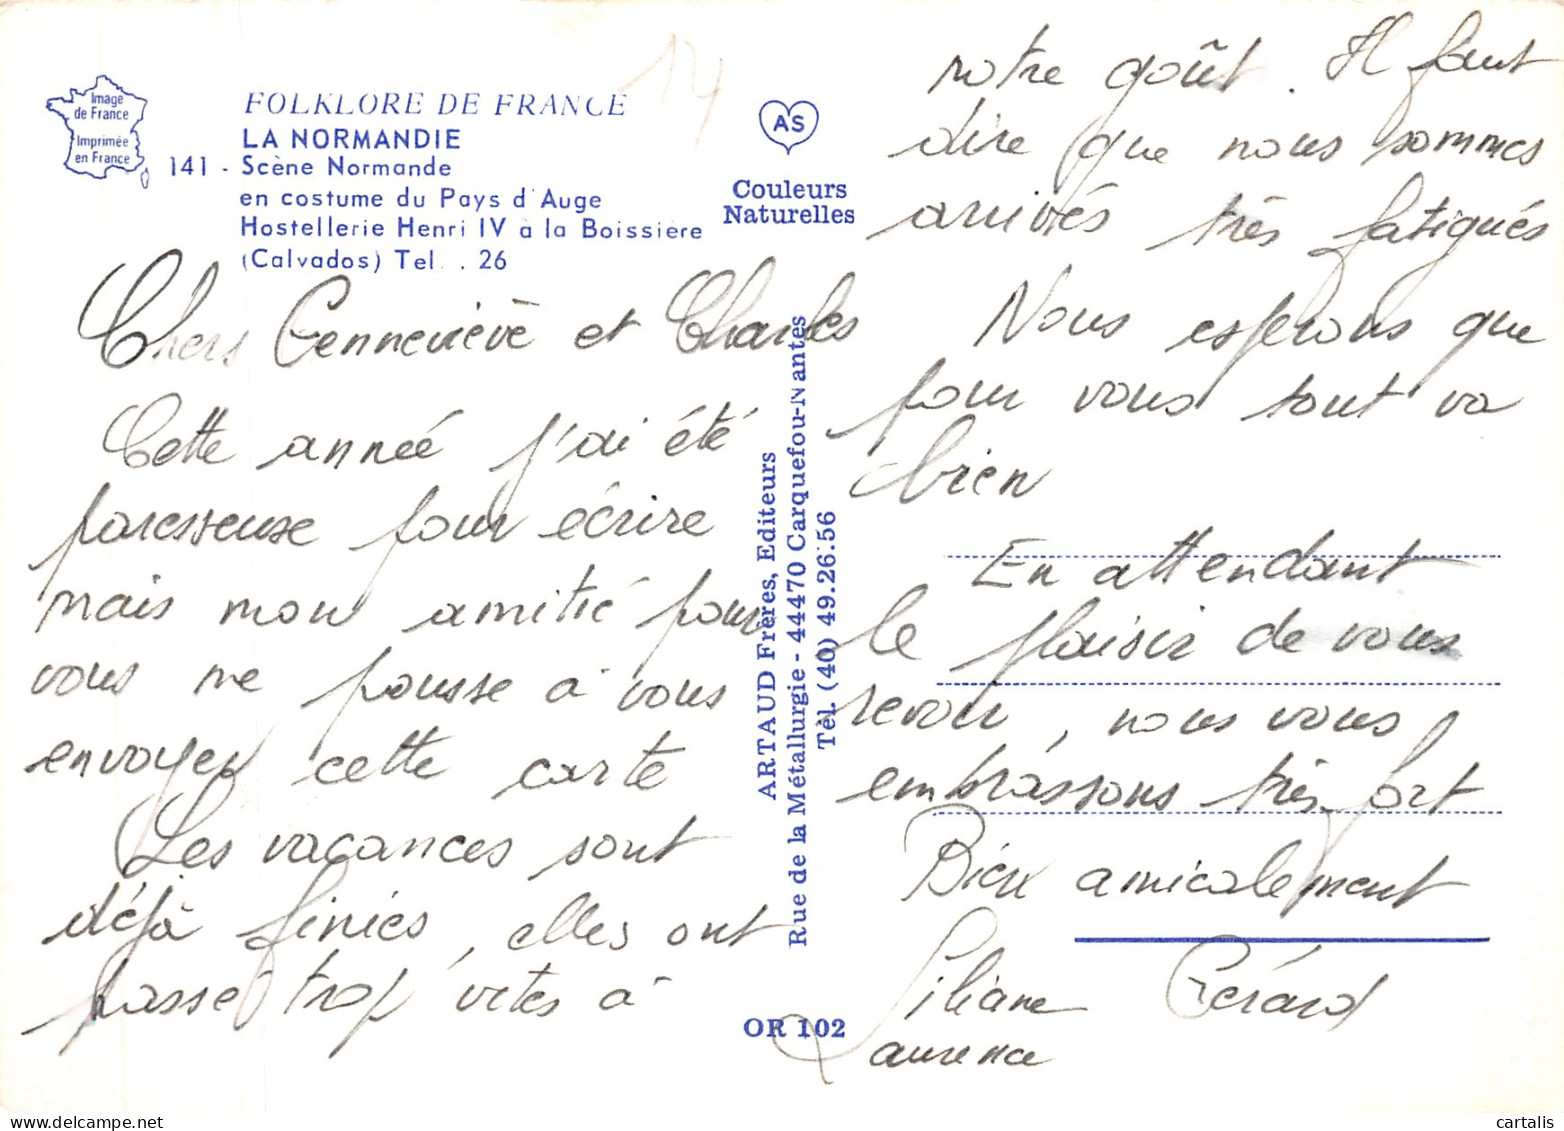 14
Image
de France
Imprimée
en France
FOLKLORE DE FRANCE
LA NORMANDIE
141 - Scène Normande
en costume du Pays d'Auge
Hostellerie Henri IV à la Boissière
(Calvados) Tel. . 26
AS
Couleurs
Naturelles
Chers Genneviève et Charles
Cette année j'ai été
paresseuse pour écrire
mais mon amitié pour
vous me pousse à vous
envoyer cette carte
Les vacances sont
déjà finies, elles ont
passé trop vites à
notre goût. Il faut
dire que nous sommes
arrivés très fatigués
Nous esperons que
pour vous tout va
bien
En attendant
le plaisir de vous
revoir, nous vous
embrassons très fort
Bien amicalement
Liliane Gérard
Laurence
ARTAUD Frères, Editeurs
Rue de la Métallurgie - 44470 Carquefou-Nantes
Tél. (40) 49.26.56
OR 102
cartalis.com